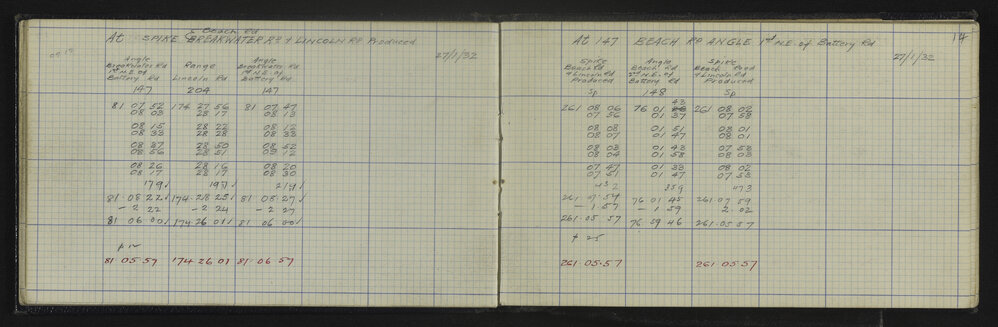 & Beach Rd
At SPIKE BREAKWATER Rd & LINCOLN RD Produced
27/1/32
Angle Range Angle
Breakwater Rd Breakwater Rd
1st N.E. of Lincoln Rd 1st N.E. of
Battery Rd Battery Rd
147 204 147
81 07 52 174 27 56 81 07 47
08 03 28 17 08 13
08 15 28 22 08 12
08 33 28 28 08 33
08 37 28 50 08 52
08 56 28 51 08 12
08 26 28 16 08 20
08 17 28 17 08 30
179 197 219
81.08 22 174.28 25 81.08 27
- 2 22 - 2 24 - 2 27
81 06 00 174.26 01 81 06 00
81.05.59 174 26 01 81.06.57
14
At 147 BEACH RD ANGLE 1st N.E. of Battery Rd
27/1/32
Spike Angle Spike
Beach Rd Beach Rd Beach Road
& Lincoln Rd 2nd N.E. of & Lincoln Rd
Produced Battery Rd Produced
Sp 148 Sp
43
261 08 06 76 01 261 08 02
07 56 01 37 07 58
08 08 01 51 08 01
08 07 01 47 08 01
08 03 01 43 07 53
08 04 01 58 08 03
07 47 01 33 08 02
07 51 01 47 07 53
432 359 473
261 07 54 76 01 45 261.07 59
- 1 57 - 1 59 2.02
261.05 57 76 59 46 261.05 57
261.05.57 261 05.57